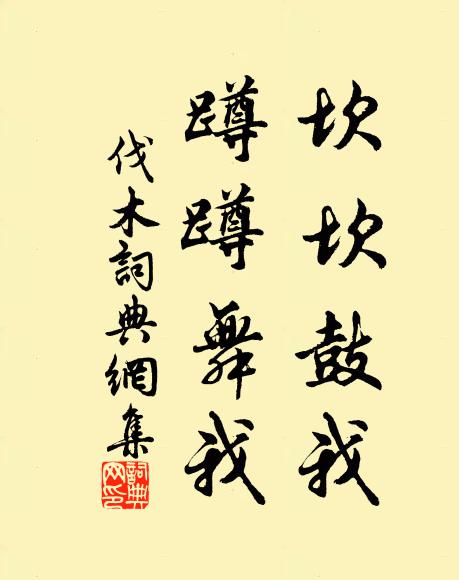 坎坎鼓我
蹲蹲舞我
伐木詞典網集
詞典网印